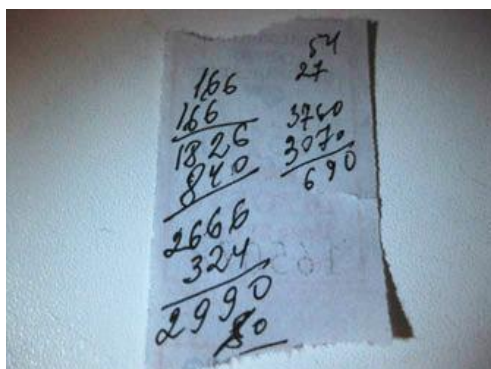 166
166
1826
840
2666
324
2990
80
54
27
3760
3070
690